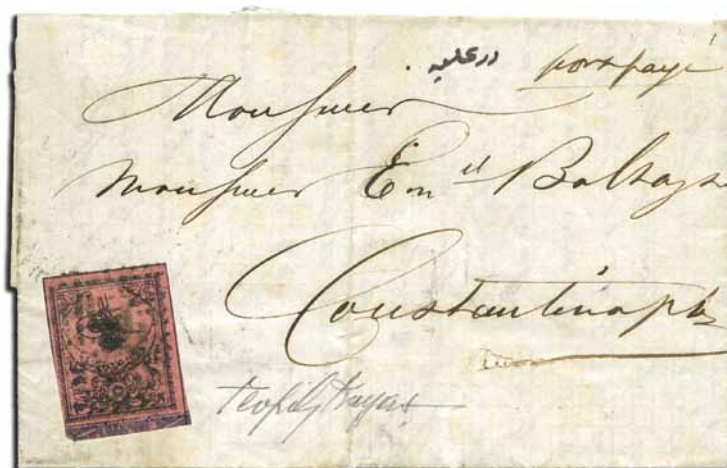 در علیه port payé
Monsieur
Monsieur Em^el Baltazzi
Constantinople